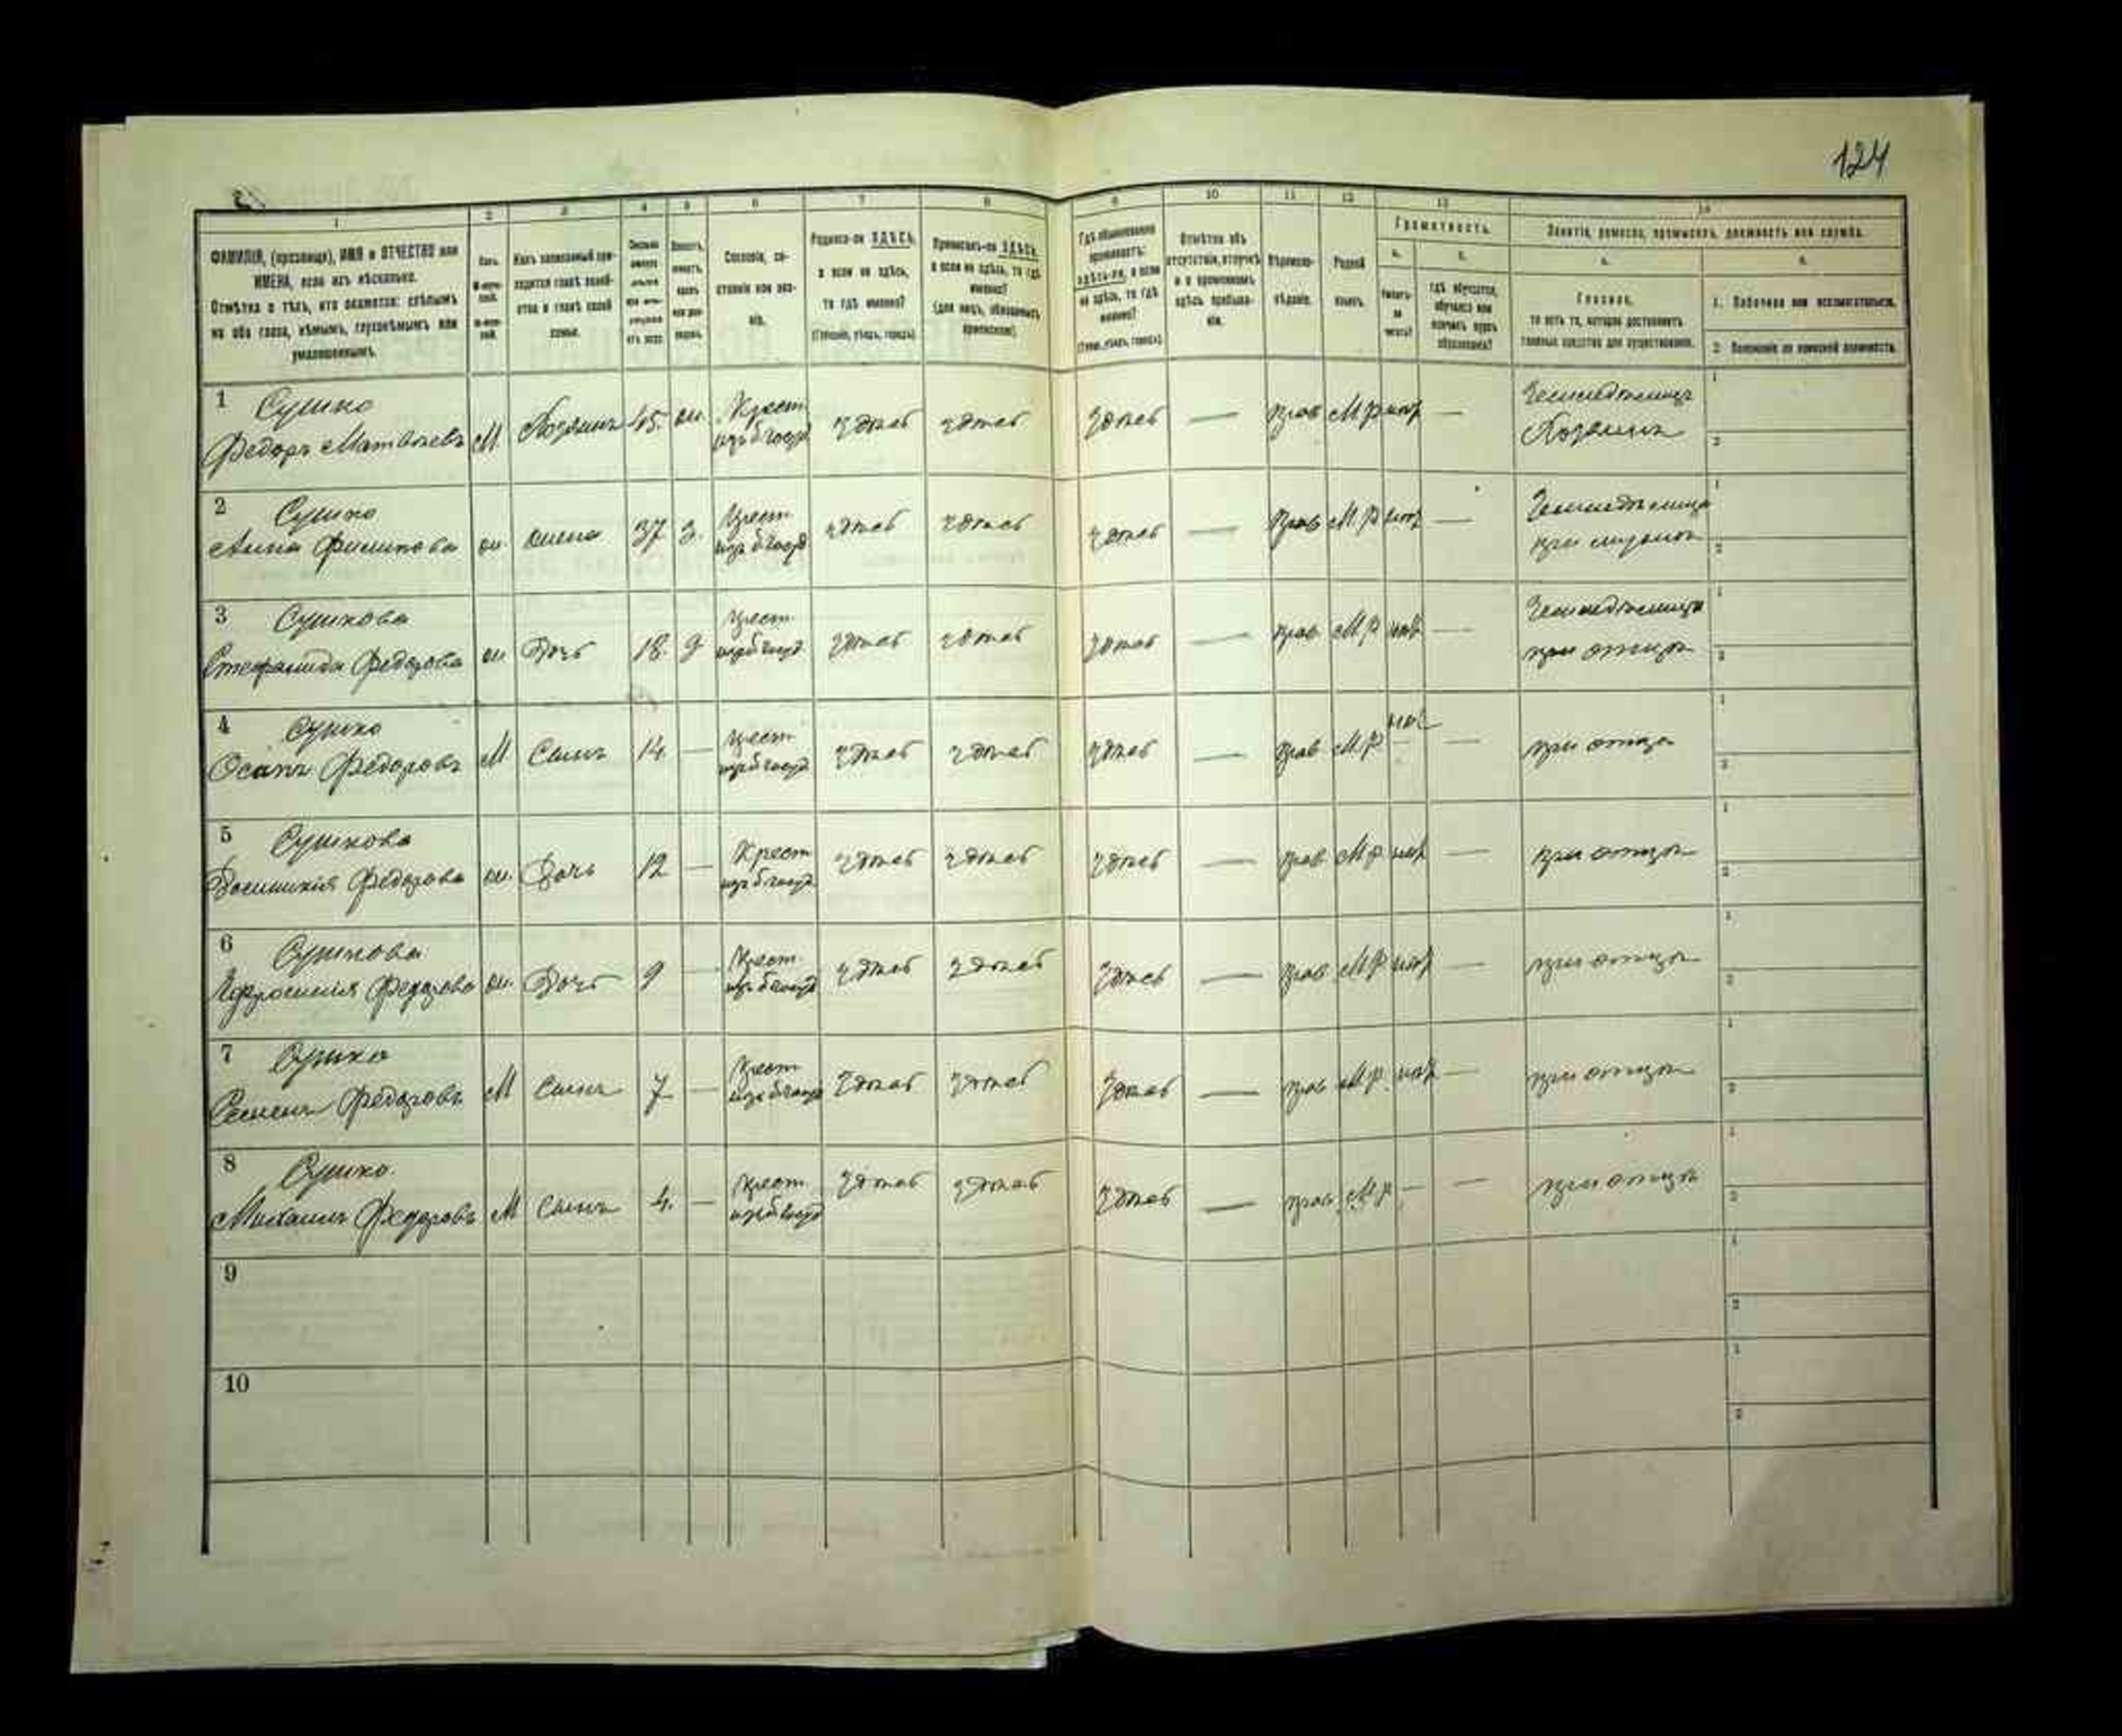 124
1 2 3 4 5 6 7 8 9 10 11 12 13 14
ФАМИЛІЯ, (прозвище), ИМЯ и ОТЧЕСТВО или
ИМЕНА, если ихъ нѣсколько.
Отмѣтка о тѣхъ, кто окажется: слѣпымъ
на оба глаза, нѣмымъ, глухонѣмымъ или
умалишеннымъ.
Полъ.
М-муж-
ской.
Ж-жен-
скій.
Какъ записанный при-
ходится главѣ хозяй-
ства и главѣ своей
семьи.
Сословіе, со-
стояніе или зва-
ніе.
Родился-ли ЗДѢСЬ,
а если не здѣсь,
то гдѣ именно?
(Губернія, уѣздъ, городъ)
Приписанъ-ли ЗДѢСЬ,
а если не здѣсь, то гдѣ
именно?
(для лицъ, обязанныхъ
припискою)
Гдѣ обыкновенно
проживаетъ:
здѣсь-ли, а если
не здѣсь, то гдѣ
именно?
(Губер., уѣздъ, городъ)
Отмѣтка объ
отсутствіи, отлучкѣ
и о временномъ
здѣсь пребыва-
ніи.
Вѣроиспо-
вѣданіе.
Родной
языкъ.
Грамотность.
а. б.
Умѣетъ-
ли
читать?
гдѣ обучается,
обучался или
кончилъ курсъ
образованія?
Занятіе, ремесло, промыселъ, должность или служба.
а. б.
Главное,
то есть то, которое доставляетъ
главныя средства для существованія.
1. Побочное или вспомогательное.
2. Положеніе по воинской повинности.
1 Сушко
Федоръ Матвѣевъ М Хозяинъ 45 ж. Крест. изъ б. госуд здѣсь здѣсь здѣсь — прав М.р нѣт — Земледѣлецъ
Хозяинъ
2 Сушко
Анна Филипова ж. жена 37 з. Крест изъ б госуд здѣсь здѣсь здѣсь — Прав М.р нѣт — Земледѣлица
при мужѣ
3 Сушкова
Стефанида Федорова ж Дочь 18. д крест изъ б госуд здѣсь здѣсь здѣсь — прав М.р нѣт — Земледѣлица
при отцѣ
4 Сушко
Осипъ Федоровъ М Сынъ 14 — крест изъ б госуд здѣсь здѣсь здѣсь — прав М.р — при отцѣ
5 Сушкова
Федорова ж. Дочь 12 — Крест изъ б госуд здѣсь здѣсь здѣсь — прав М.р нѣт — при отцѣ
6 Сушкова
Федорова ж. Дочь 9 — Крест изъ б госуд здѣсь здѣсь здѣсь — прав М.р нѣт — при отцѣ
7 Сушко
Семенъ Федоровъ М Сынъ 7 — Крест изъ б госуд здѣсь здѣсь здѣсь — прав М.р. нѣт — при отцѣ
8 Сушко
Михаилъ Федоровъ М Сынъ 4. — Крест изъ б госуд здѣсь здѣсь здѣсь — прав М.р — — при отцѣ
9
10